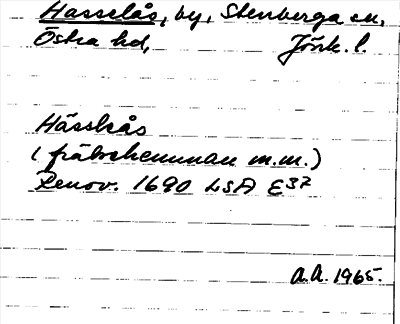 Hasselås, by, Stenberga sn,
Östra hd, Jönk. l.
Hässleås
(frälsehemman m.m.)
Renov. 1690 LSA E32
A.A. 1965.